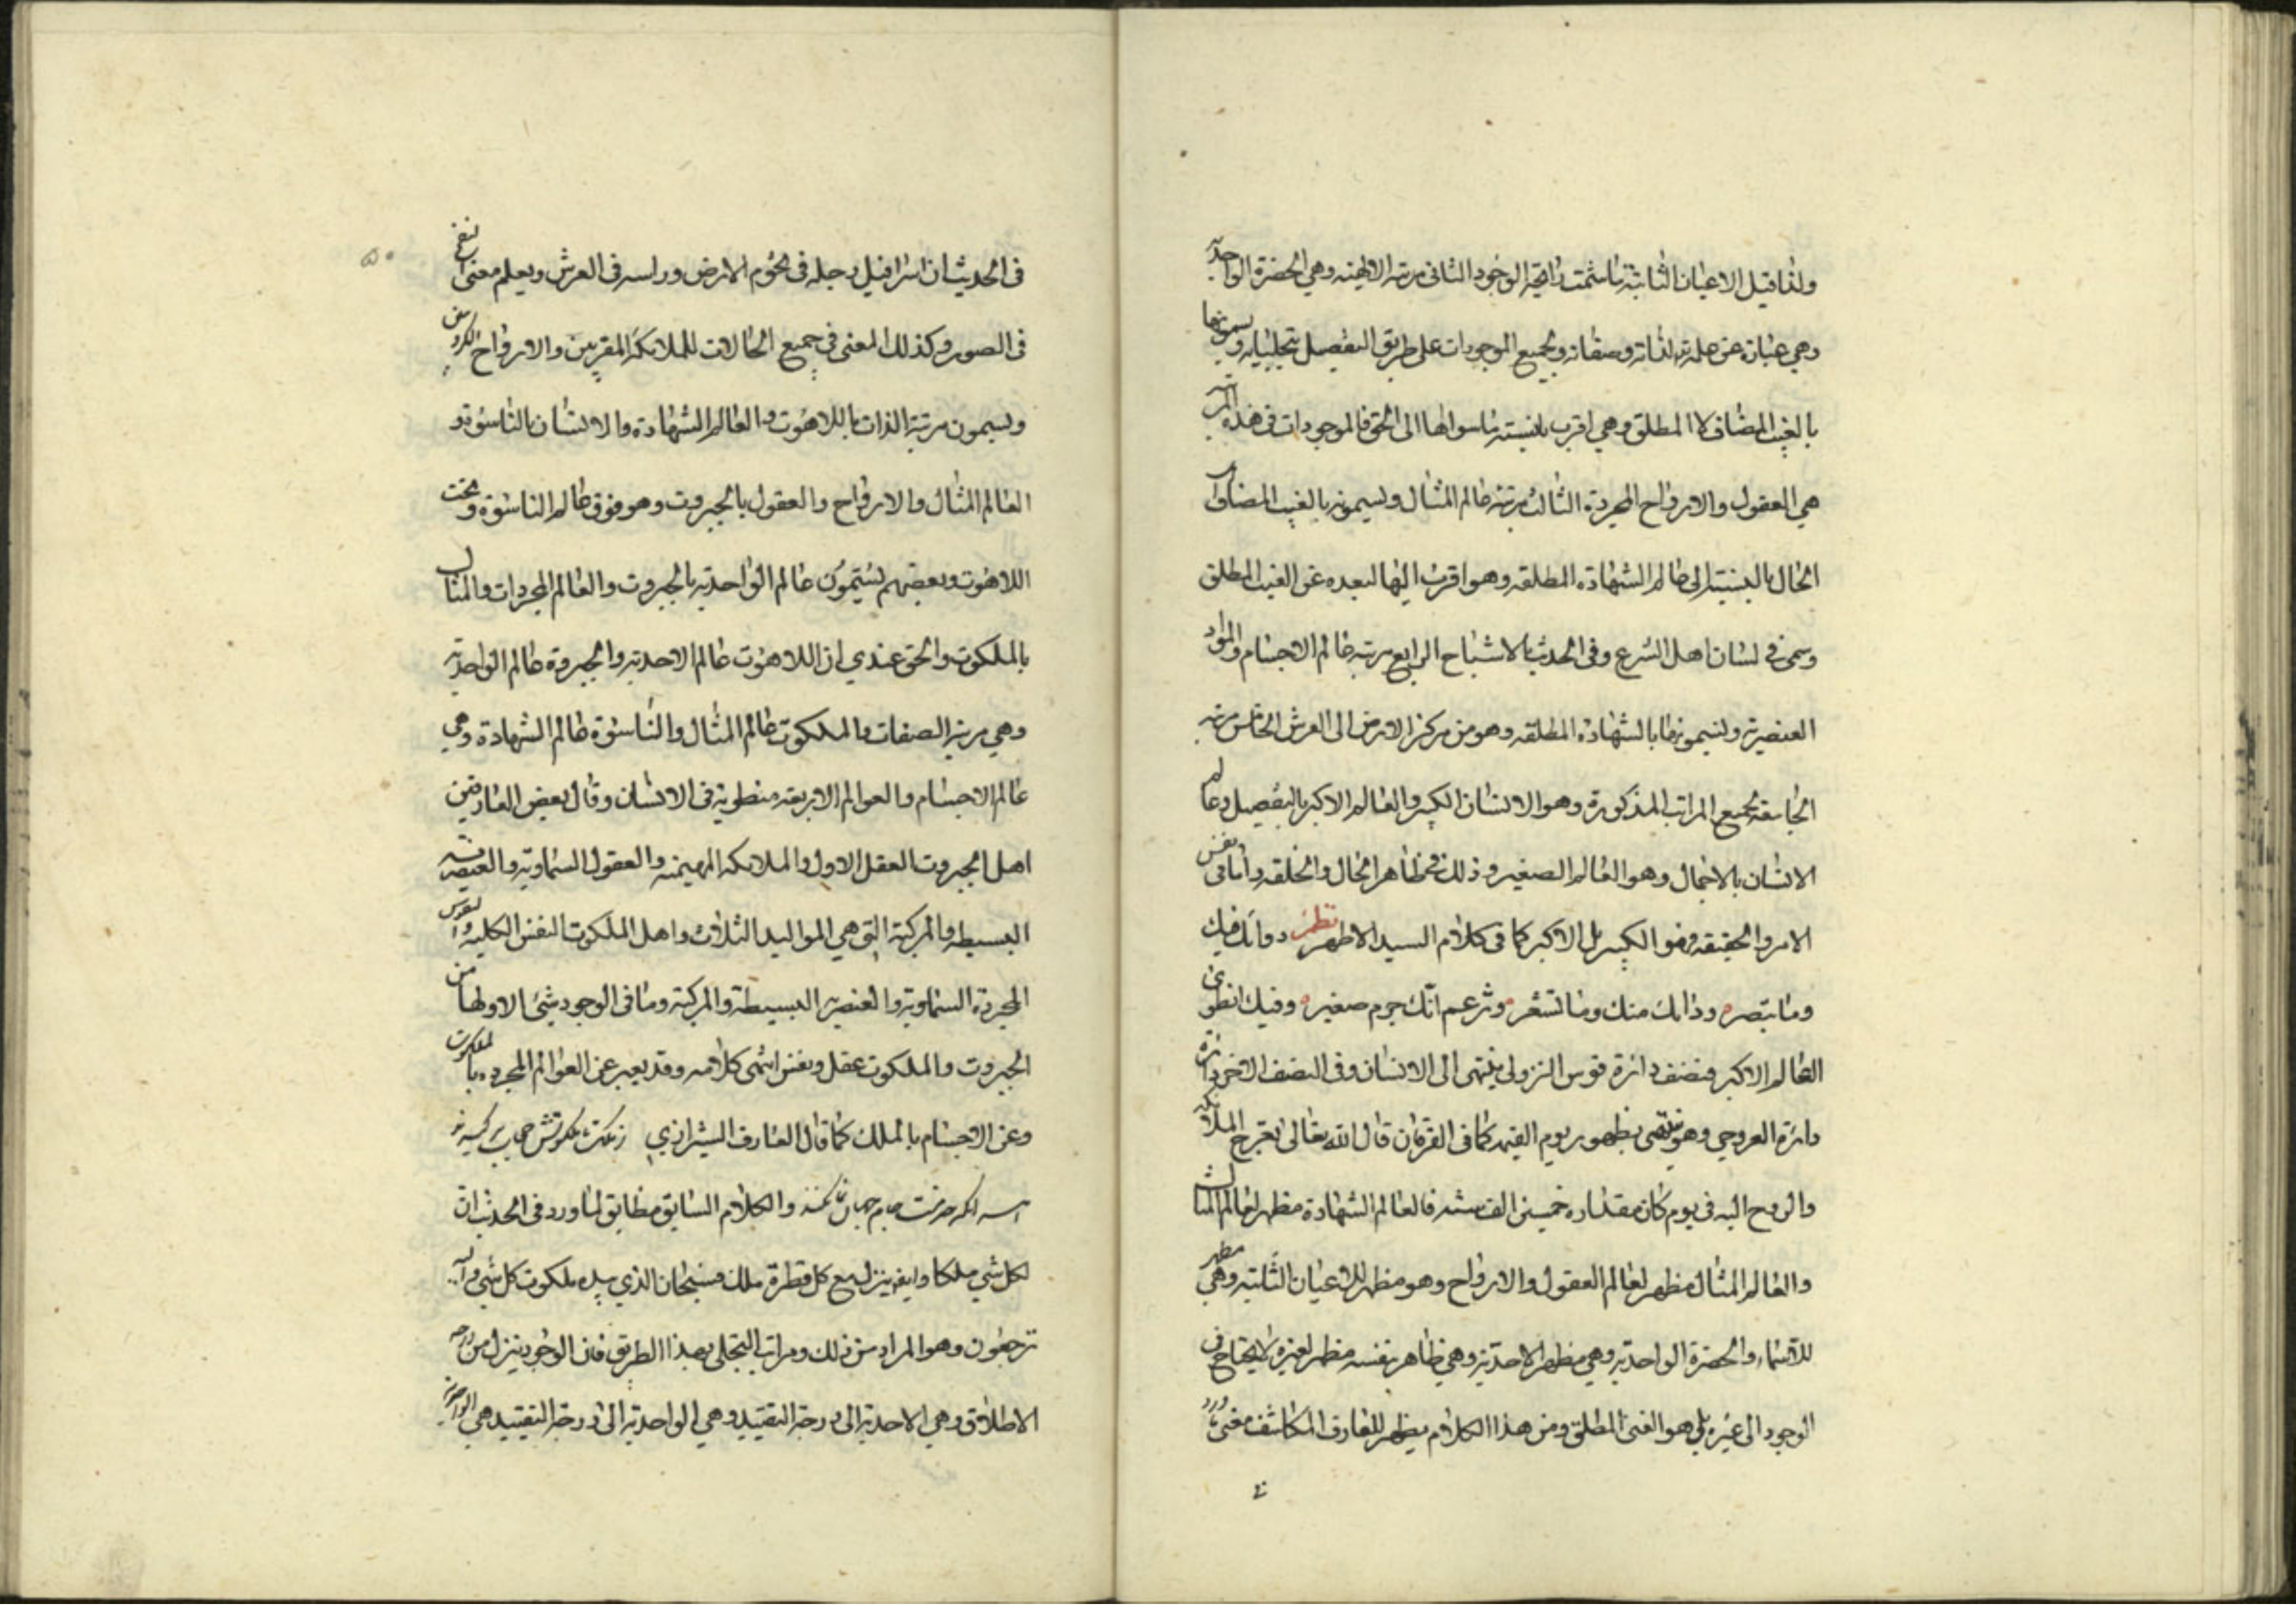 ولذا قيل الاعيان الثابتة ما شمت رائحة الوجود الثاني مرتبة الالهية وهي الحضرة الواحدية
وهي عبارة عن علمه لذاته وصفاته وجميع الموجودات على طريق التفصيل بتجلياته ويسمونها
بالغيب المضاف لا المطلق وهي اقرب بالنسبة ما سواها الى الحق فالموجودات في هذه المرتبة
هي العقول والارواح المجردة الثالث مرتبة عالم المثال ويسمونه بالغيب المضاف
الحال بالنسبة الى عالم الشهادة المطلقه وهو اقرب اليها لبعده عن الغيب المطلق
وسمي في لسان اهل الشرع وفي الحديث بالاشباح الرابع مرتبة عالم الاجسام والمواد
العنصرية ويسمونها بالشهادة المطلقه وهو من مركز الارض الى العرش الخامس مرتبه
الجامعة لجميع المراتب المذكورة وهو الانسان الكبير والعالم الاكبر بالتفصيل وعالم
الانسان بالاجمال وهو العالم الصغير وذلك في ظاهر الحال والخلقه واما في نفس
الامر والحقيقه وهو الكبير بل الاكبر كما في كلام السيد الاطهر نظم دواءك فيك
وما تبصر وداءك منك وما تشعر وتزعم انك جرم صغير وفيك انطوى
العالم الاكبر فنصف دائرة قوس النزولي ينتهى الى الانسان وفي النصف الاخر دائرة
دائرة العروجي وهو ينتهى بظهور يوم القيمه كما في القرءان قال الله تعالى تعرج الملائكة
والروح اليه في يوم كان مقداره خمسين الف سنة فالعالم الشهادة مظهر لعالم المثال
والعالم المثال مظهر لعالم العقول والارواح وهو مظهر للاعيان الثابتة وهي مظهر
للاسماء والحضرة الواحدية وهي مظهر الاحدية وهي ظاهر بنفسه مظهر لغيره لا يحتاج في
الوجود الى غيره بل هو الغني المطلق ومن هذا الكلام يظهر للعارف المكاشف معنى ما ورد
في الحديث ان اسرافيل رجله في تخوم الارض وراسه في العرش ويعلم معنى النفخ
في الصور وكذلك المعنى في جميع الحالات للملائكة المقربين والارواح الكروبين
ويسمون مرتبة الذات باللاهوت والعالم الشهادة والانسان بالناسوة و
العالم المثال والارواح والعقول بالجبروت وهو فوق عالم الناسوة وتحت
اللاهوت وبعضهم يسمون عالم الواحدية بالجبروت والعالم المجردات والمثال
بالملكوت والحق عندي ان اللاهوت عالم الاحدية والجبروة عالم الواحدية
وهي مرتبة الصفات والملكوت عالم المثال والناسوة عالم الشهادة وهي
عالم الاجسام والعوالم الاربعة منطوية في الانسان وقال بعض العارفين
اهل الجبروت العقل الاول والملائكه المهيمنه والعقول السماوية والعنصرية
البسيطه والمركبة التي هي المواليد الثلاث واهل الملكوت النفس الكليه والنفوس
المجردة السماوية والعنصرية البسيطة والمركبة وما في الوجود شيء الا ولها من
الجبروت والملكوت عقل ونفس انتهى كلامه وقد يعبر عن العوالم المجرده بالملكوت
وعن الاجسام بالملك كما قال العارف الشيرازي
والكلام السابق مطابق لما ورد في الحديث ان
لكل شي ملكا وايضا ينزل مع كل قطرة ملك فسبحان الذي بيده ملكوت كل شي واليه
ترجعون وهو المراد من ذلك ومراتب التجلي بهذا الطريق فان الوجود ينزل من درجه
الاطلاق وهي الاحدية الى درجة التقييد وهي الواحدية الى درجة التقييد هي